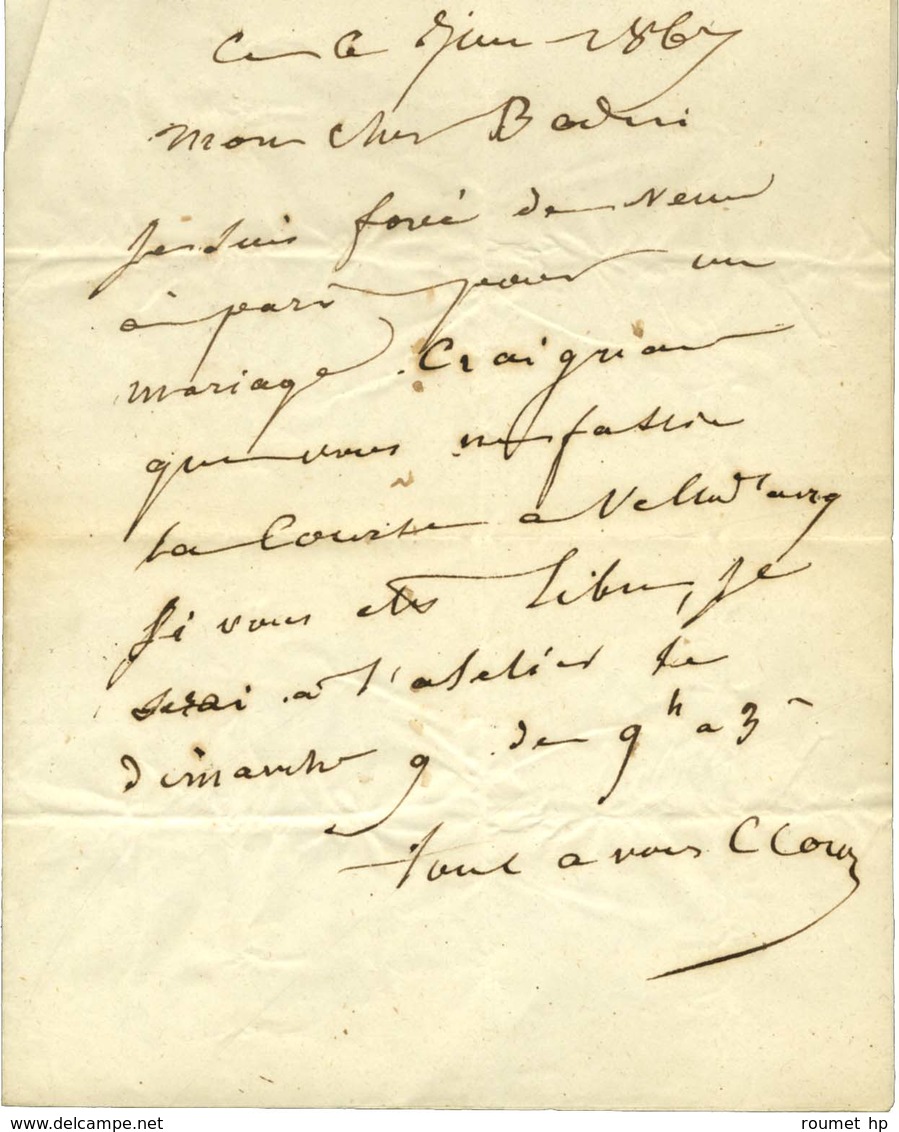 Ce 6 Juin 1867
Mon cher Badin
Je suis forcé de venir
à paris pour un
mariage. Craignant
que vous ne fassiez
la Course a
Si vous etes libre, je
serai à l'atelier le
dimanche 9 de 9h a 3
tout a vous
roumet hp